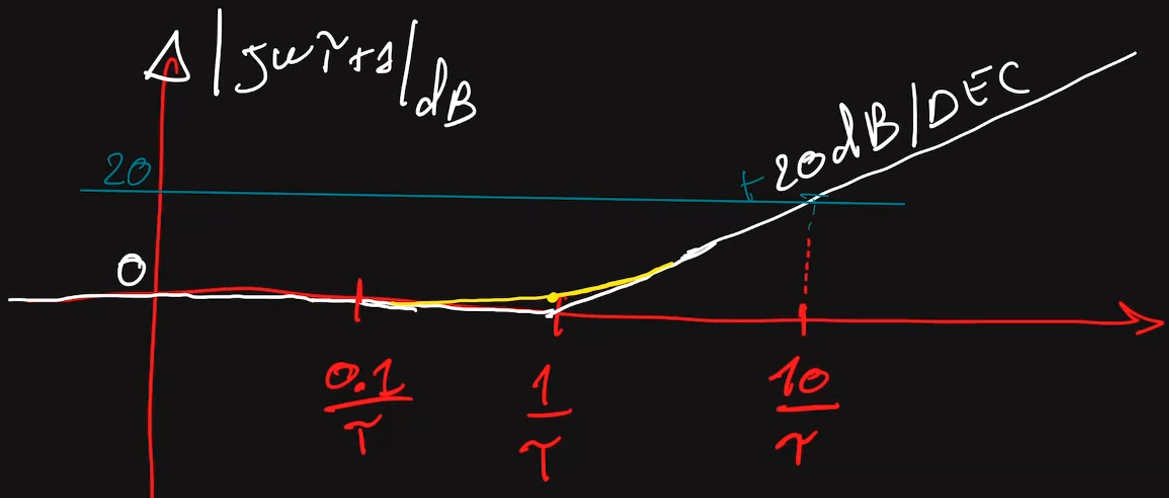 |jωτ+1|dB
20
+20dB/DEC
0
0.1/τ
1/τ
10/τ